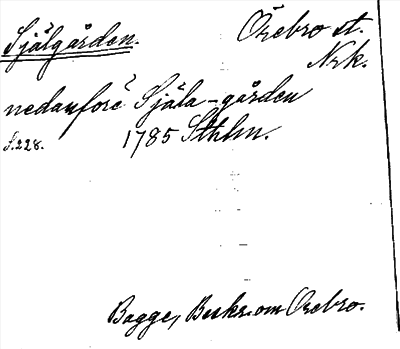 Själgården.
Örebro st.
Nrk.
nedanföre Själa-gården
S. 228.
1785 Sthlm.
Bagge, Beskr. om Örebro.